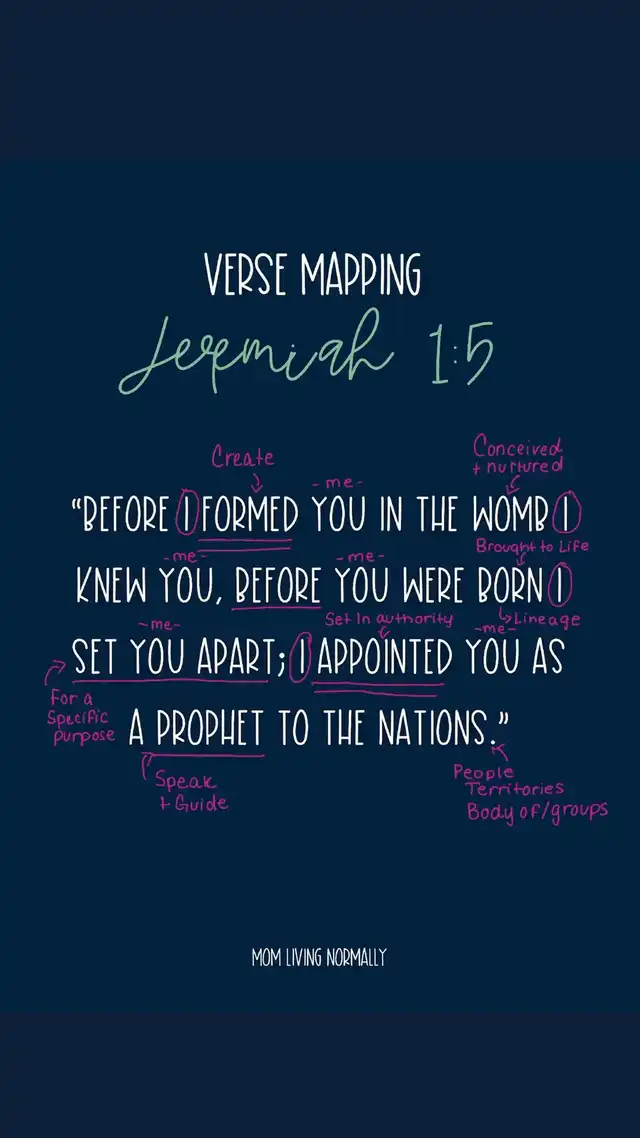 VERSE MAPPING
Jeremiah 1:5
Create
Conceived
+ nurtured
-me-
"BEFORE I FORMED YOU IN THE WOMB I
Brought to Life
-me-
-me-
KNEW YOU, BEFORE YOU WERE BORN I
Set In authority
Lineage
-me-
-me-
SET YOU APART; I APPOINTED YOU AS
For a
Specific
purpose
A PROPHET TO THE NATIONS."
Speak
+ Guide
People
Territories
Body of/groups
MOM LIVING NORMALLY